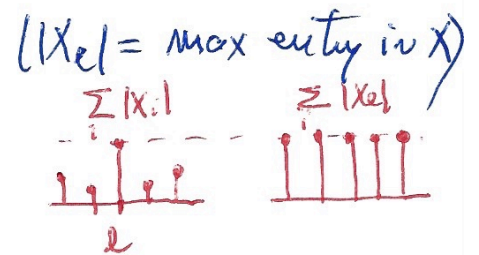 (|Xₑ| = max entry in X)
∑ᵢ |Xᵢ| ∑ᵢ |Xₑ|
ℓ